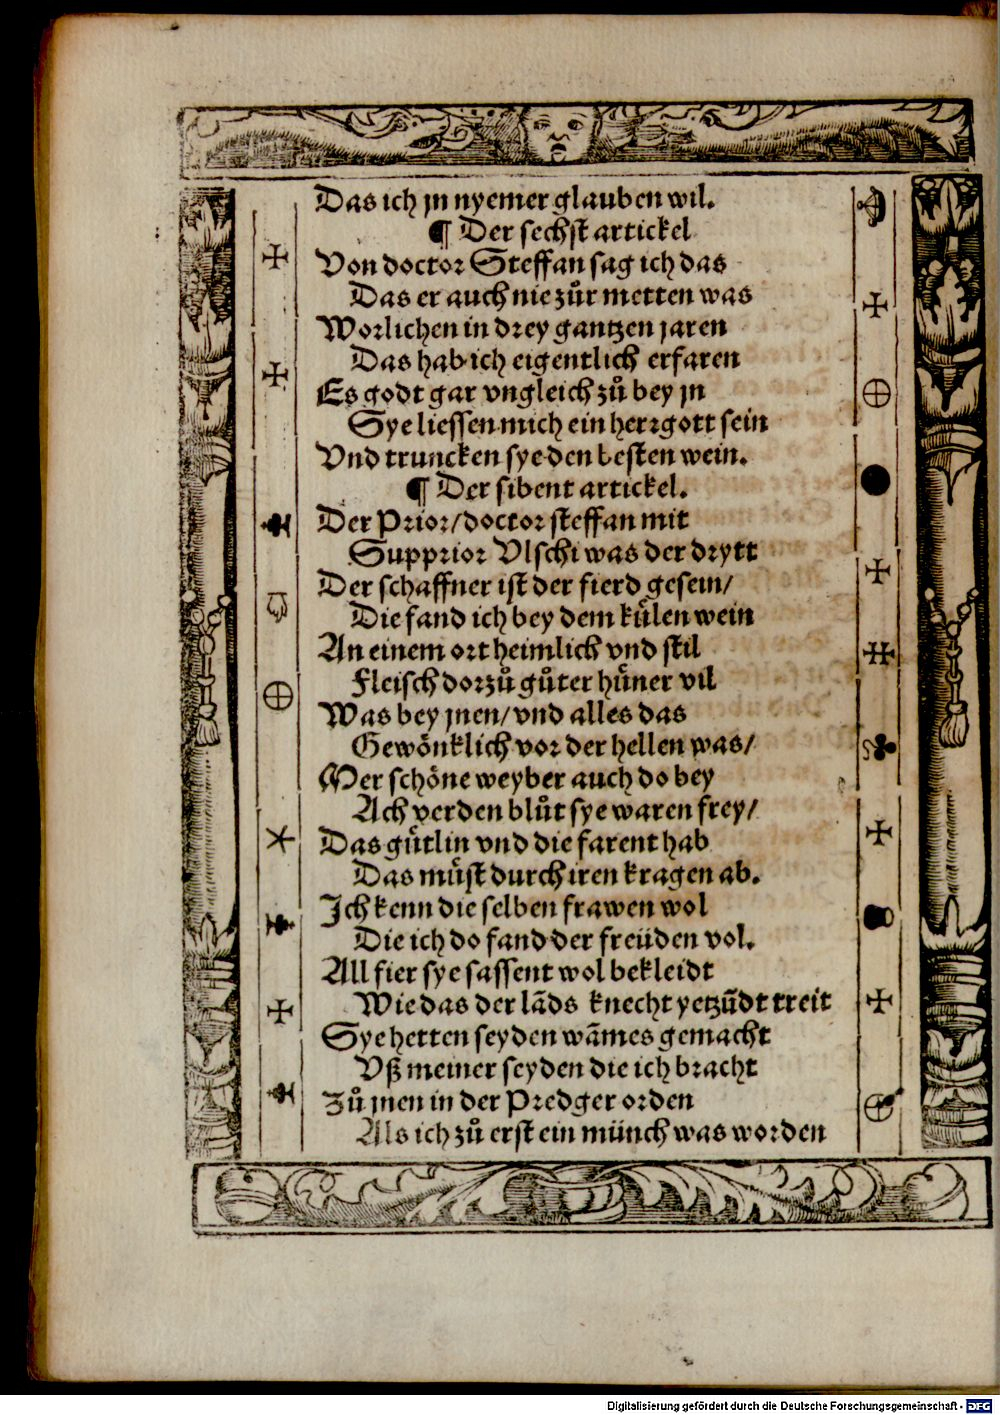 Das ich jn nyemer glauben wil.
¶ Der sechst artickel
Von doctor Steffan sag ich das
Das er auch nie zůr metten was
Worlichen in drey gantzen jaren
Das hab ich eigentlich erfaren
Es godt gar vngleich zů bey jn
Sye liessen mich ein herrgott sein
Vnd truncken sye den besten wein.
¶ Der sibent artickel.
Der Prior/doctor steffan mit
Supprior Vlschi was der drytt
Der schaffner ist der fierd gesein/
Die fand ich bey dem kůlen wein
An einem ort heimlich vnd stil
Fleisch dorzů gůter hůner vil
Was bey jnen/vnd alles das
Gewönklich vor der hellen was/
Mer schöne weyber auch do bey
Ach verden blůt sye waren frey/
Das gůtlin vnd die farent hab
Das můst durch iren kragen ab.
Ich kenn die selben frawen wol
Die ich do fand der freüden vol.
All fier sye sassent wol bekleidt
Wie das der lãds knecht yetzũdt treit
Sye hetten seyden wãmes gemacht
Vß meiner seyden die ich bracht
Zů jnen in der Predger orden
Als ich zů erst ein münch was worden
Digitalisierung gefördert durch die Deutsche Forschungsgemeinschaft - DFG